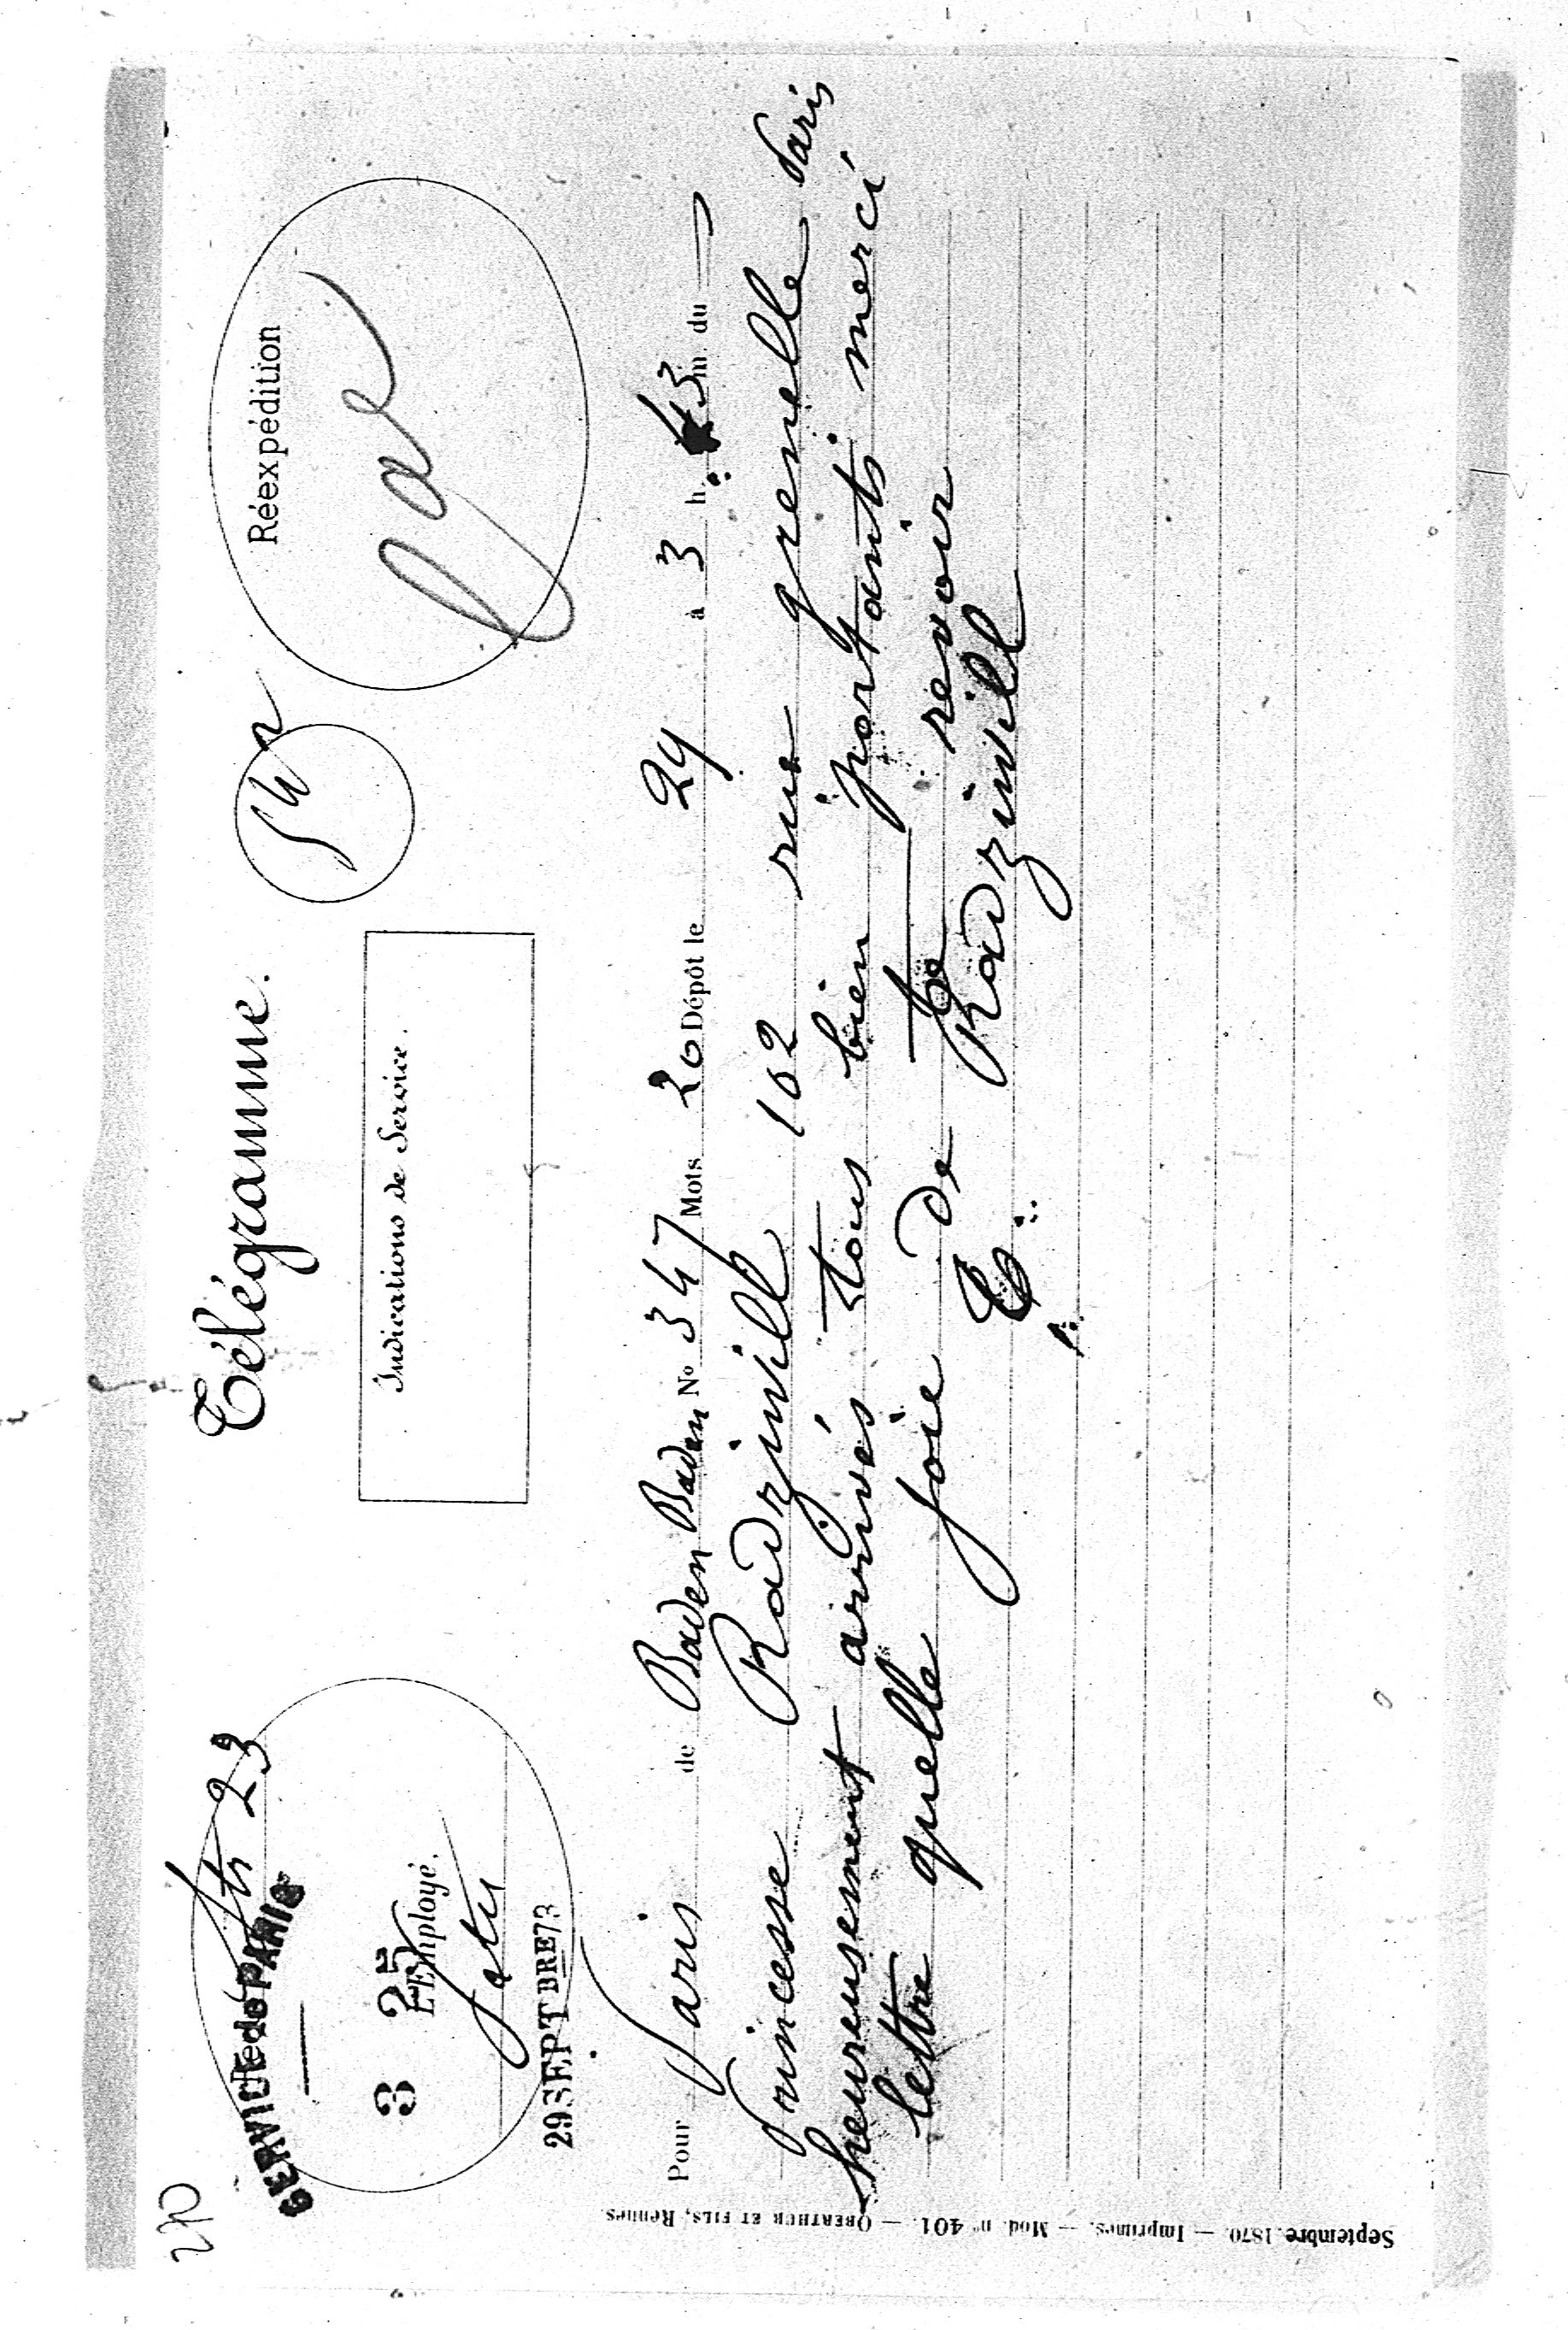 270
Télégramme.
Réexpédition
23
SERVICE de PARIS
3 25
L'Employé.
29 SEPTBRE 73
Indications de Service.
Pour Paris de Baden Baden No 347 Mots 20 Dépôt le 29 à 3 h. 43 m. du
Princesse Radzivill 162 rue grenelle Paris
heureusement arrivés tous bien portants merci
lettre quelle joie de te revoir
C. Radzivill
Septembre 1870. — Imprimes. — Mod. n° 401. — OBERTHUR ET FILS, Rennes.